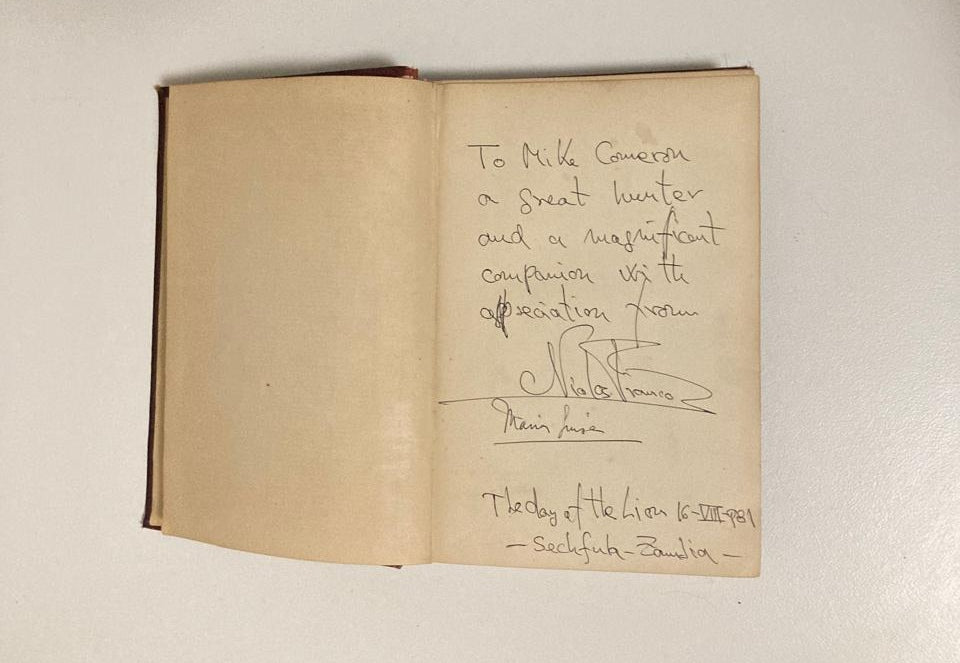 To Mike Cameron
a great hunter
and a magnificant
companion with
appreciation from
Nicolas Franco
Maria Luisa
The day of the Lion 16-VIII-981
- Sechfula - Zambia -